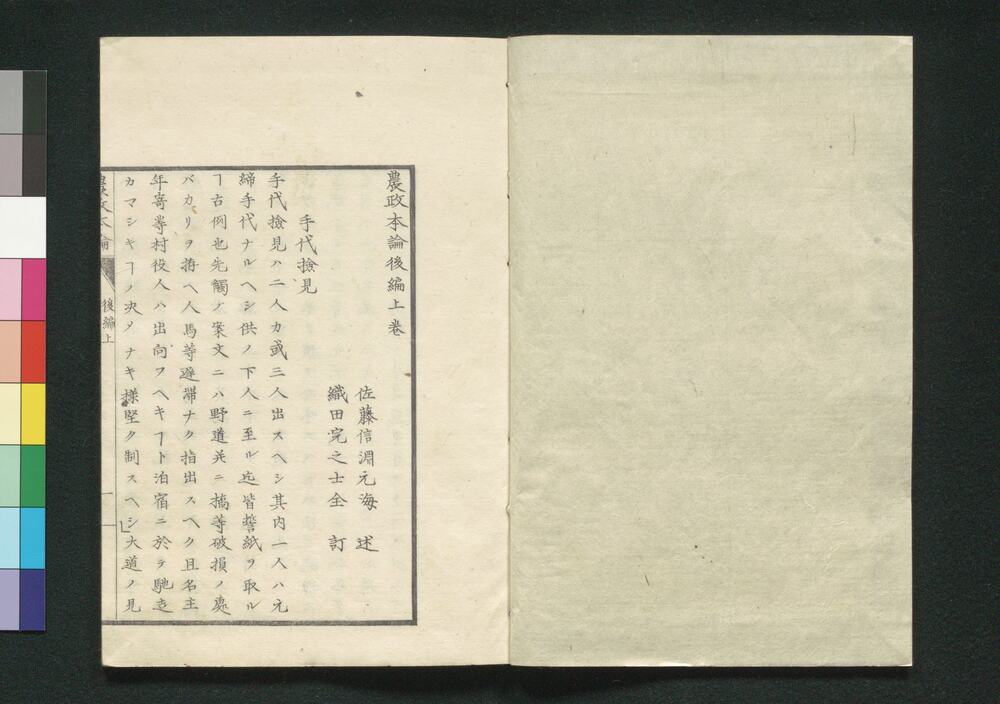 農政本論後編上巻
佐藤信淵元海 述
織田完之士全 訂
手代撿見
手代撿見ハ二人カ或三人出スヘシ其内一人ハ元
締手代ナルヘシ供ノ下人ニ至ル迄皆誓紙ヲ取ル
ヿ古例也先觸ノ案文ニハ野道并ニ橋等破損ノ處
バカリヲ拵ヘ人馬等遲滯ナク指出スヘク且名主
年寄等村役人ハ出向フヘキヿト泊宿ニ於テ馳走
カマシキヿノ決〆ナキ樣堅ク制スヘシ」大道ノ見
農政本論
後編上
一